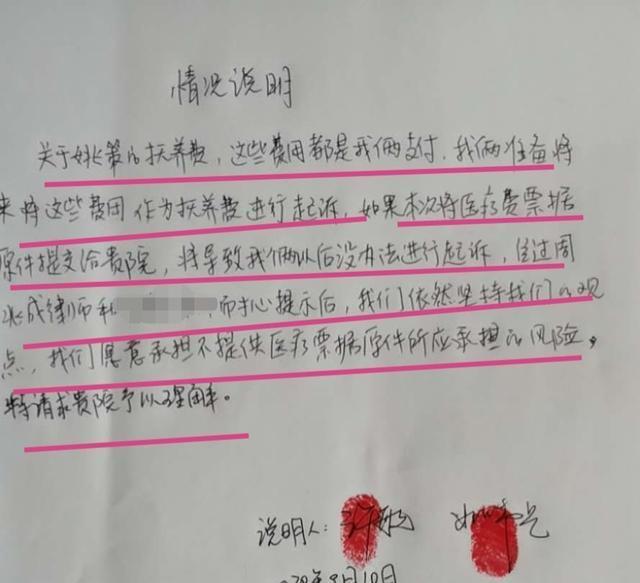 情况说明
关于姚策的扶养费，这些费用都是我俩支付，我俩准备将
来将这些费用作为扶养费进行起诉，如果本次将医疗费票据
原件提交给贵院，将导致我们俩以后没办法进行起诉，经过周
兆成律师和 耐心提示后，我们依然坚持我们的观
点，我们愿意承担不提供医疗票据原件所应承担的风险，
特请求贵院予以理解。
说明人：许敏
月10日